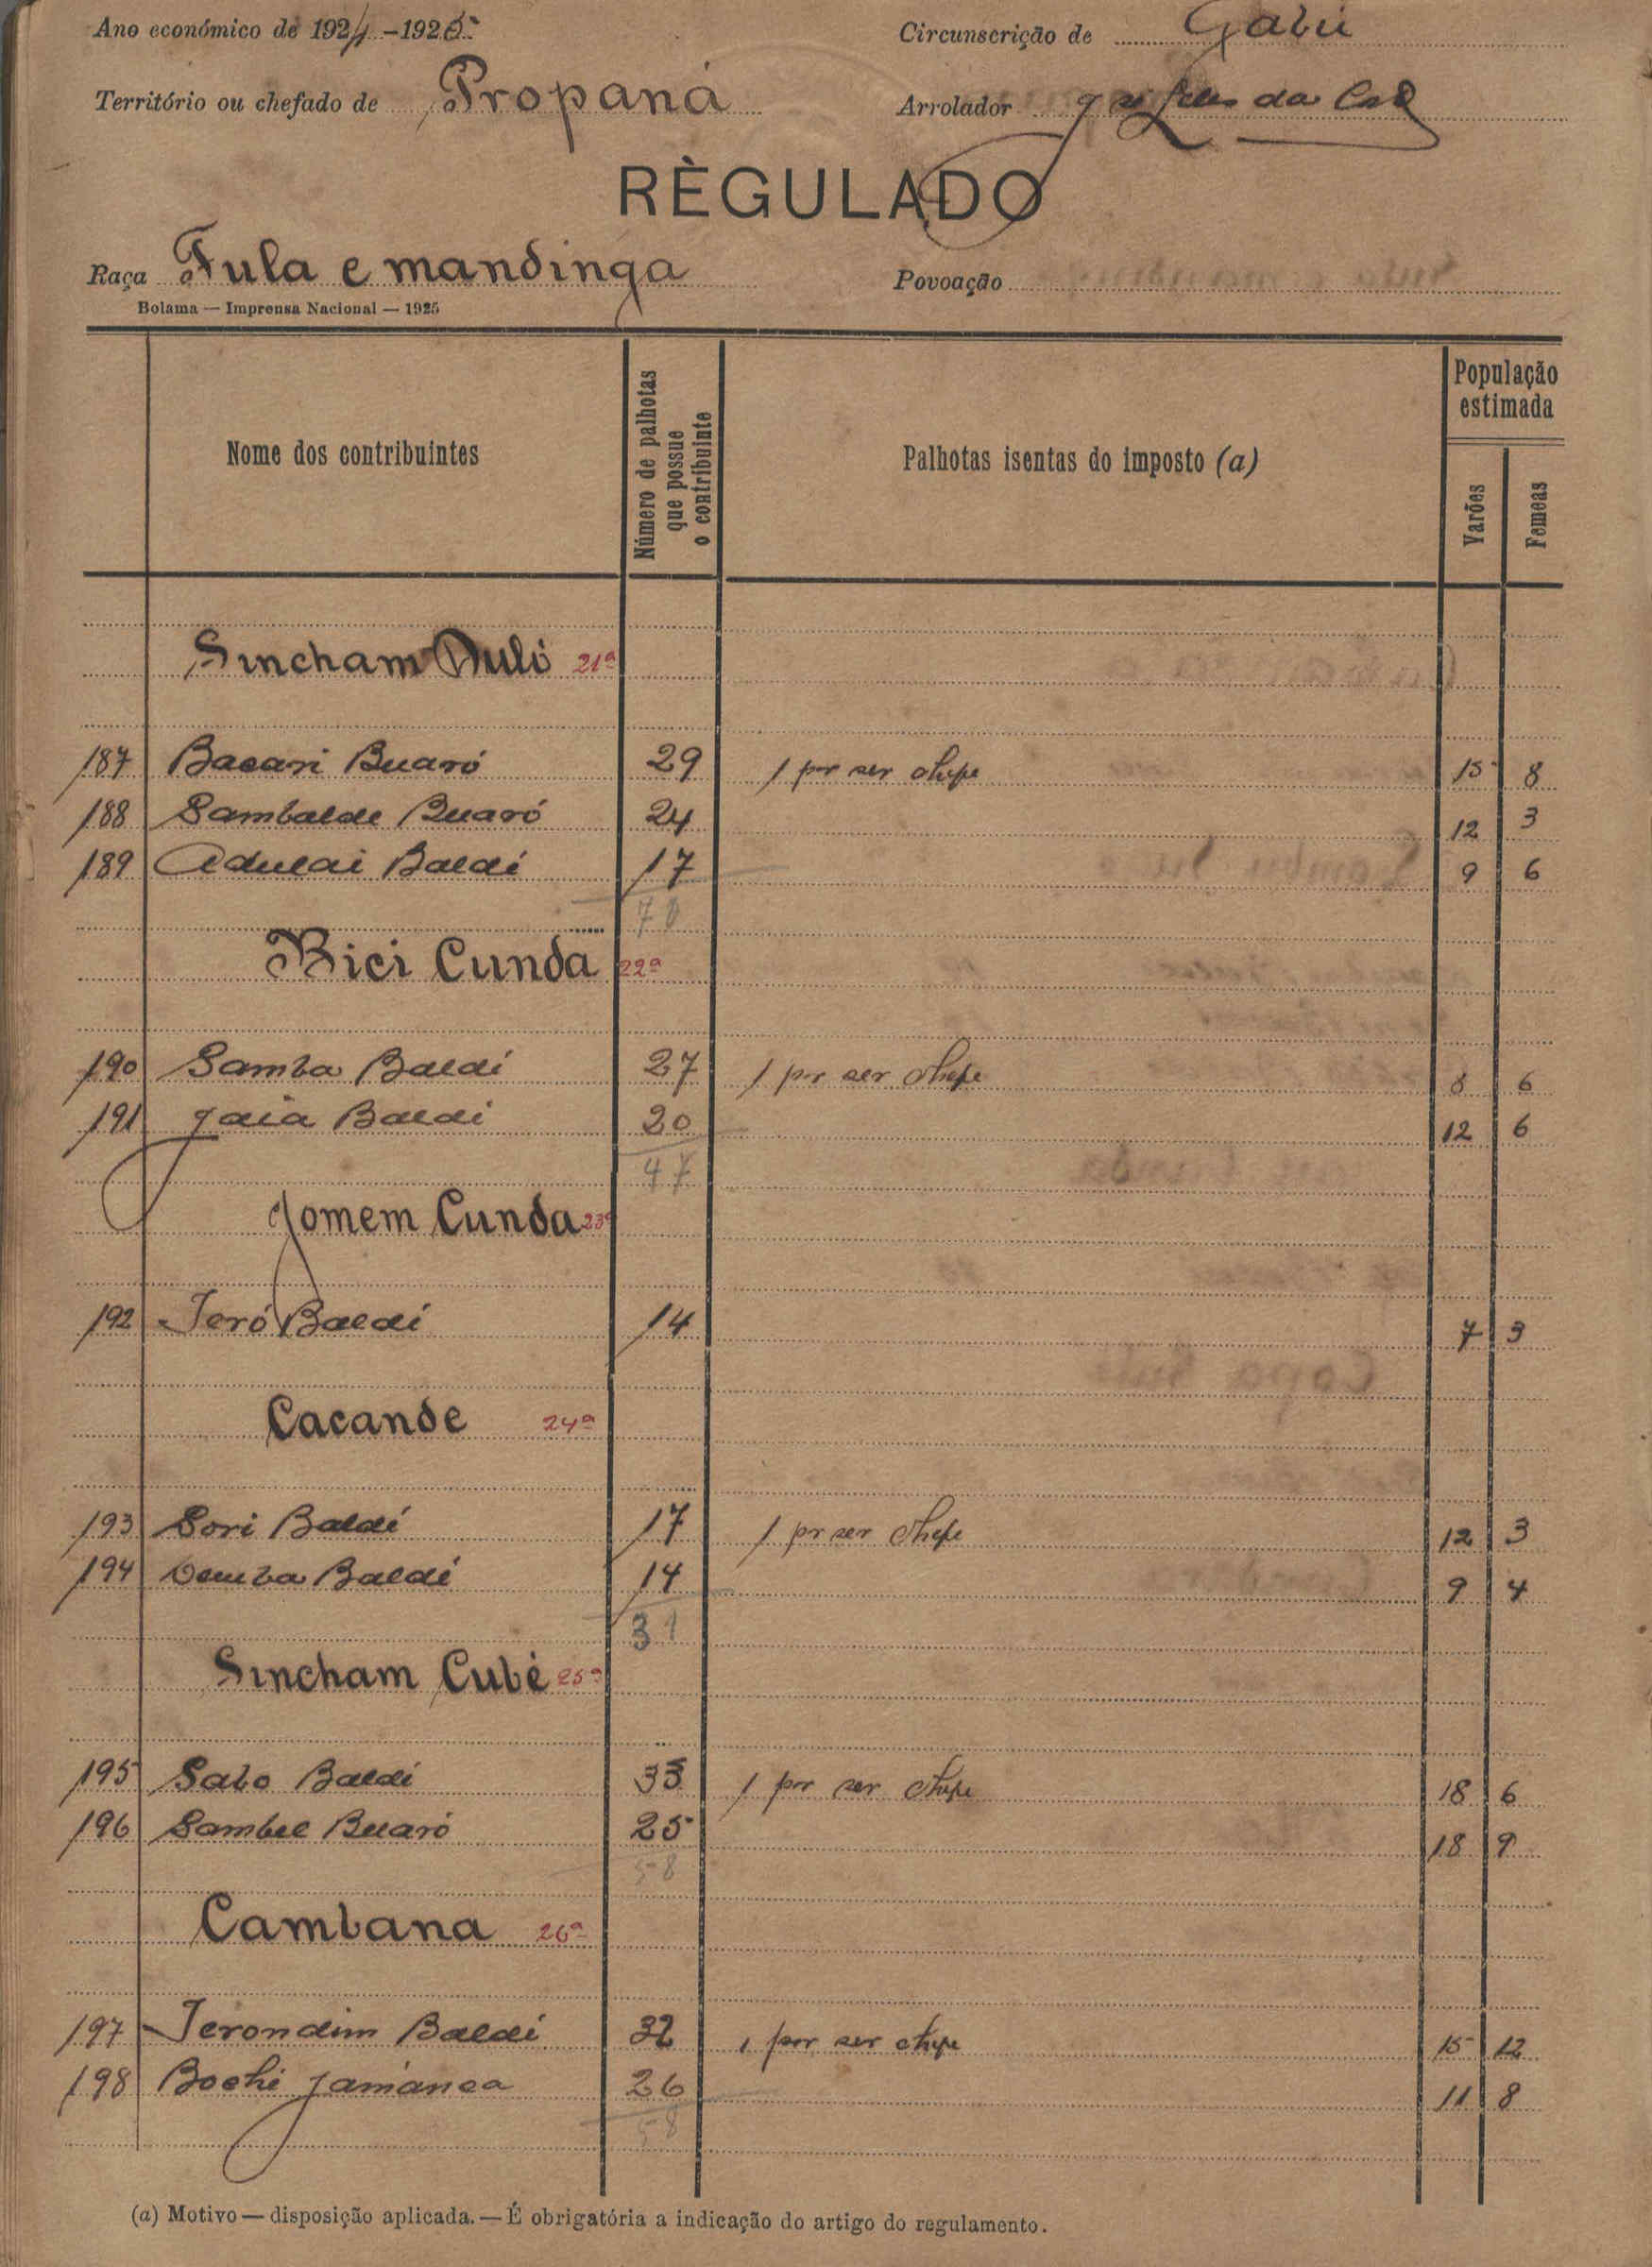 Ano económico de 1924-1925 Circunscrição de Gabú
Território ou chefado de Propaná Arrolador da
RÈGULADO
Raça Fula e mandinga Povoação
Bolama — Imprensa Nacional — 1925
Nome dos contribuintes
Número de palhotas que possue o contribuinte
Palhotas isentas do imposto (a)
População estimada
Varões
Femeas
Sincham Duló 21ª
187 Bacari Buaró 29 1 por ser chefe 15 8
188 Sambalde Buaró 24 12 3
189 Adulai Baldé 17 9 6
70
Bici Cunda 22ª
190 Samba Baldé 27 1 por ser chefe 8 6
191 Jaia Baldé 20 12 6
47
Jomem Cunda 23ª
192 Jeró Baldé 14 7 3
Cacande 24ª
193 Sori Baldé 17 1 pr ser chefe 12 3
194 Demba Baldé 14 9 4
31
Sincham Cubé 25ª
195 Sabo Baldé 33 1 por ser chefe 18 6
196 Sambel Buaró 25 18 9
58
Cambana 26ª
197 Jerondim Baldé 32 1 por ser chefe 15 12
198 Bochi Jamánca 26 11 8
58
(a) Motivo — disposição aplicada. — É obrigatória a indicação do artigo do regulamento.